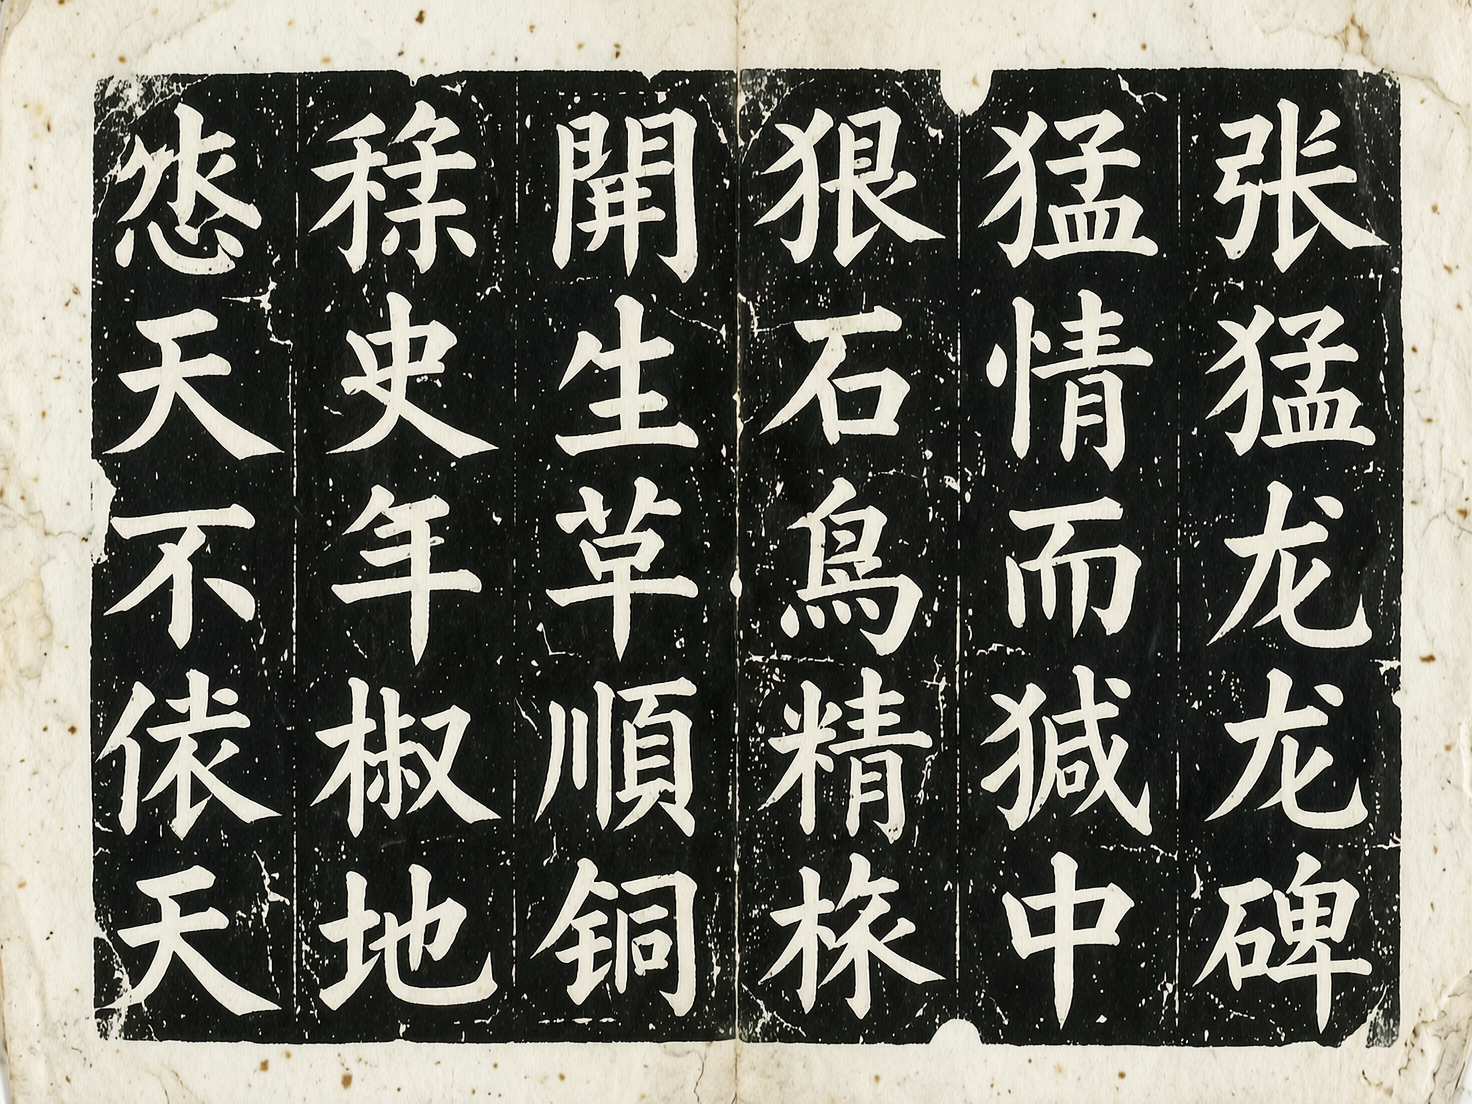 张猛龙龙碑
猛情而中
狠石鳥精
開生草順铜
史年椒地
天不天